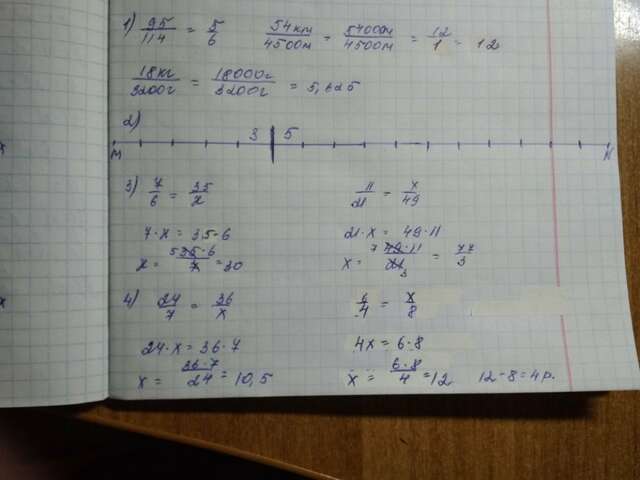 1) 95/114 = 5/6   54км/4500м = 54000м/4500м = 12/1 = 12
18кг/3200г = 18000г/3200г = 5,625
2)
3 5
M N
3) 7/6 = 35/x   11/21 = x/49
7·x = 35·6   21·x = 49·11
x = 5 35·6/7 = 30   x = 7 49·11/21 3 = 77/3
4) 24/7 = 36/x   6/4 = x/8
24·x = 36·7   4x = 6·8
x = 36·7/24 = 10,5   x = 6·8/4 = 12   12-8=4р.